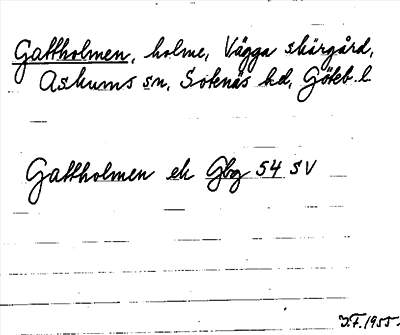 Gattholmen, holme, Vägga skärgård,
Askums sn, Sotenäs hd, Göteb. l.
Gattholmen ek Gbg 54 SV
I.F. 1955.